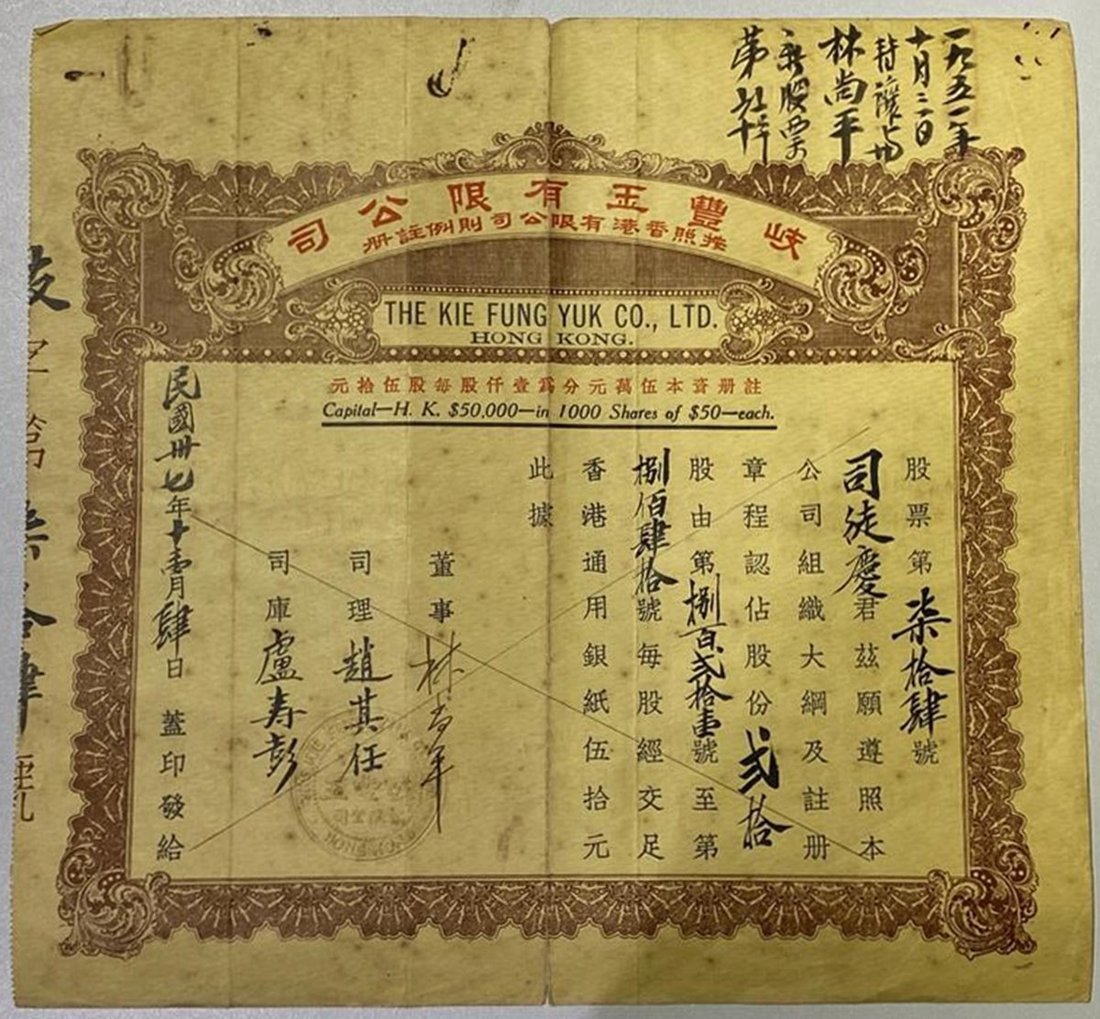 一九五一年
十月三日
轉讓与
林尚平
新股票
第
岐豐玉有限公司
按照香港有限公司則例註册
THE KIE FUNG YUK CO., LTD.
HONG KONG.
註册資本伍萬元分爲壹仟股每股伍拾元
Capital—H. K. $50,000—in 1000 Shares of $50—each.
股票第柒拾肆號
司徒慶君茲願遵照本
公司組織大綱及註册
章程認佔股份弍拾
股由第捌百弍拾壹號至第
捌佰肆拾號每股經交足
香港通用銀紙伍拾元
此據
董事林尚平
司理趙其任
司庫盧寿彭
民國卅七年十壹月肆日蓋印發給